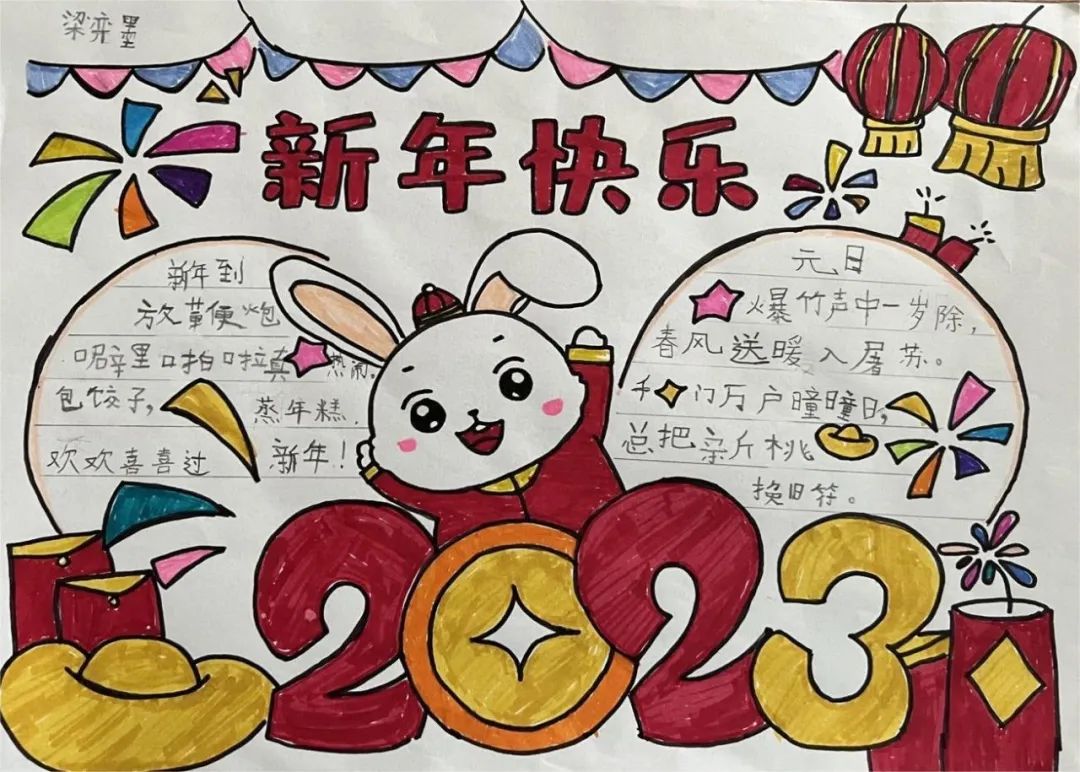 梁弈墨
新年快乐
新年到
放鞭炮
噼里啪啦真热闹。
包饺子, 蒸年糕.
欢欢喜喜过新年!
元日
爆竹声中一岁除,
春风送暖入屠苏。
千门万户曈曈日,
总把新桃
换旧符。
2023